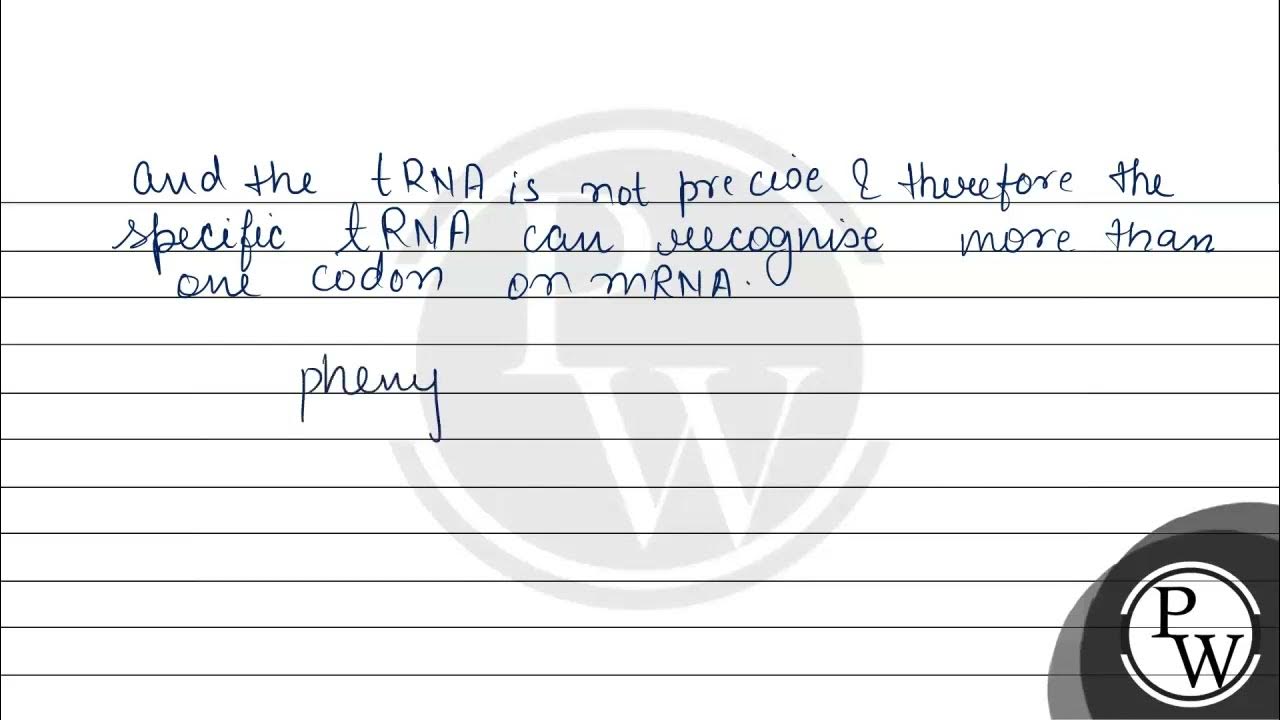 and the tRNA is not precise & therefore the
specific tRNA can recognise more than
one codon on mRNA.
pheny
P
W
P
W